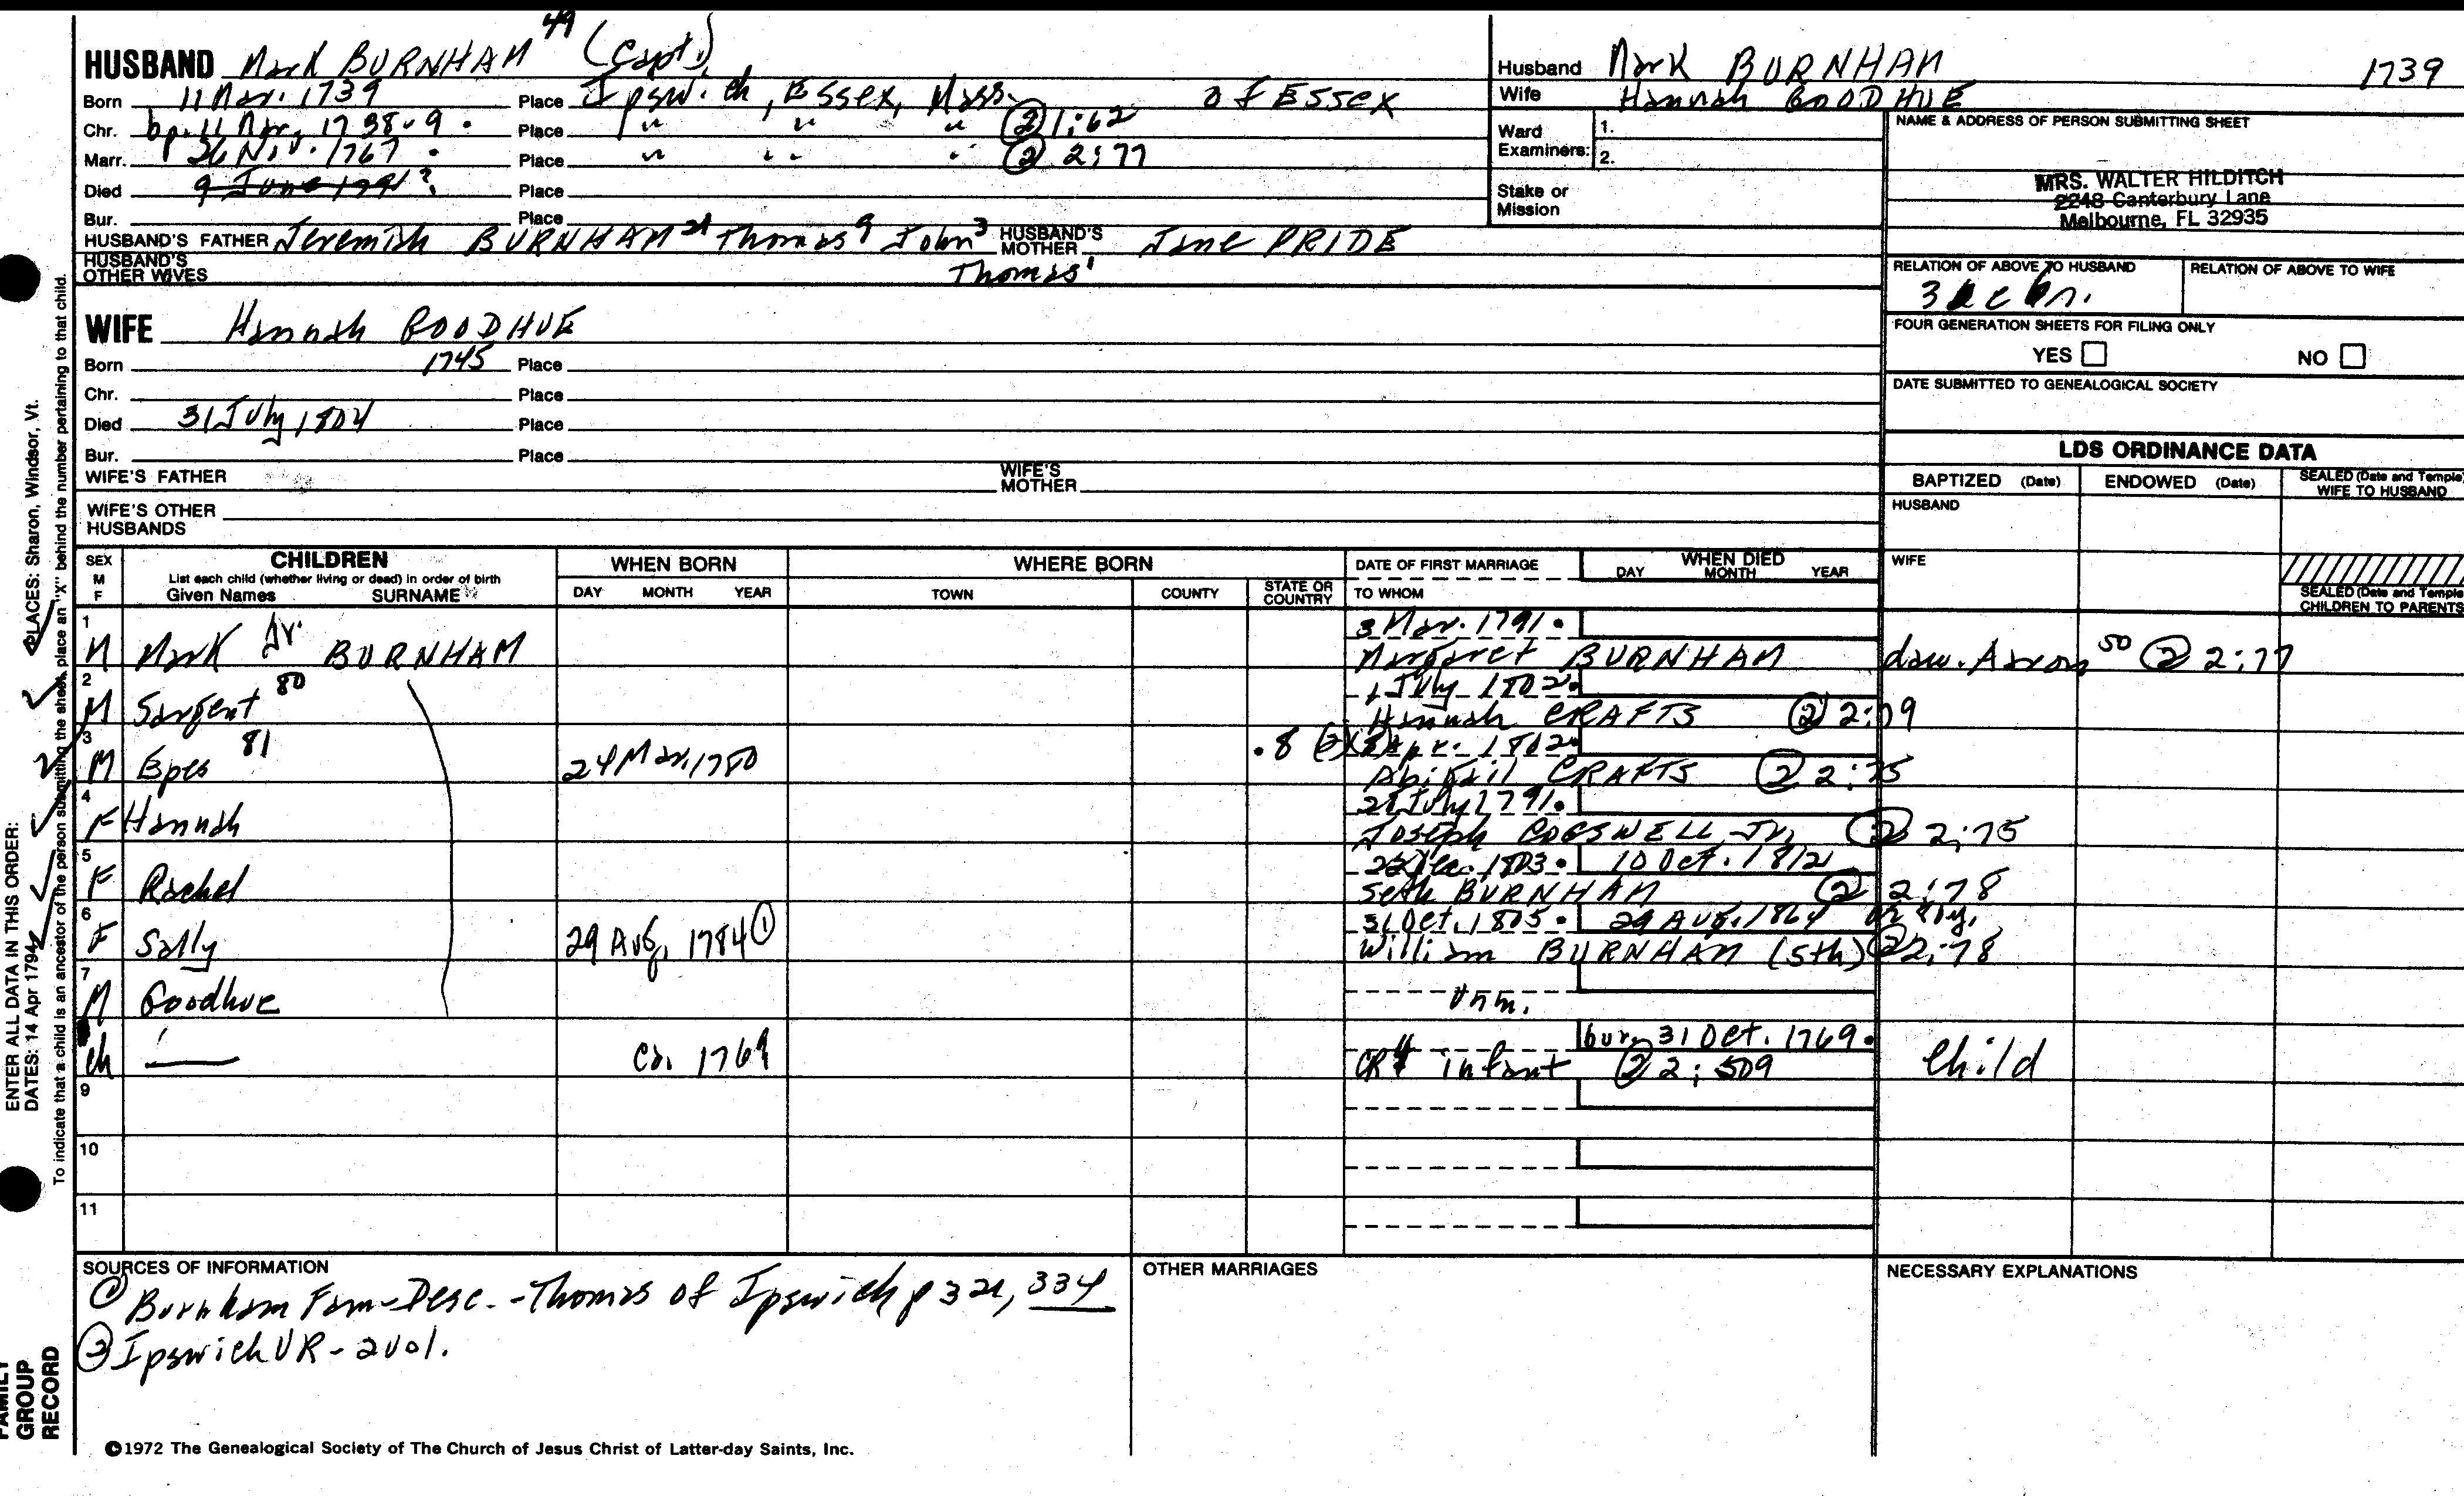 HUSBAND Mark BURNHAM 49 (Capt.)
Born 11 Mar. 1739 Place Ipswich, Essex, Mass. of Essex
Chr. bp. 11 Mar. 1738-9. Place " " " ② 1:62
Marr. 26 Nov. 1767. Place " " " ② 2:77
Died 9 June 1791? Place
Bur. Place
HUSBAND'S FATHER Jeremiah BURNHAM 21 Thomas 9 John 3 Thomas 1 HUSBAND'S MOTHER Jane PRIDE
HUSBAND'S OTHER WIVES
WIFE Hannah GOODHUE
Born 1745 Place
Chr. Place
Died 31 July 1804 Place
Bur. Place
WIFE'S FATHER WIFE'S MOTHER
WIFE'S OTHER HUSBANDS
Husband Mark BURNHAM 1739
Wife Hannah GOODHUE
Ward Examiners: 1. 2.
Stake or Mission
NAME & ADDRESS OF PERSON SUBMITTING SHEET
MRS. WALTER HILDITCH
2248 Canterbury Lane
Melbourne, FL 32935
RELATION OF ABOVE TO HUSBAND RELATION OF ABOVE TO WIFE
FOUR GENERATION SHEETS FOR FILING ONLY
YES NO
DATE SUBMITTED TO GENEALOGICAL SOCIETY
LDS ORDINANCE DATA
BAPTIZED (Date) ENDOWED (Date) SEALED (Date and Temple) WIFE TO HUSBAND
HUSBAND
WIFE
SEALED (Date and Temple) CHILDREN TO PARENTS
SEX M F CHILDREN List each child (whether living or dead) in order of birth Given Names SURNAME
WHEN BORN DAY MONTH YEAR
WHERE BORN TOWN COUNTY STATE OR COUNTRY
DATE OF FIRST MARRIAGE TO WHOM
WHEN DIED DAY MONTH YEAR
1 3 Mar. 1791.
M Mark Jr. BURNHAM Margaret BURNHAM dau. Aaron 50 ② 2:77
2 1 July 1802.
M Sargent 80 Hannah CRAFTS ② 2:
3 Apr. 1802
M Epes 81 24 Mar. 1780 Abigail CRAFTS ② 2:75
4 July 1791.
F Hannah Joseph COGSWELL Jr. ② 2:75
5 Dec. 1803. 10 Oct. 1812
F Rachel Seth BURNHAM ② 2:78
6 31 Oct. 1805. 29 Aug. 1864
F Sally 29 Aug. 1784 ① William BURNHAM (5th) ② 2:78
7
M Goodhue Unm.
bur. 31 Oct. 1769.
ch — ca. 1769 CR4 infant ② 2:509 Child
9
10
11
SOURCES OF INFORMATION
① Burnham Fam - Desc. - Thomas of Ipswich p 321, 334
② Ipswich VR - 2 vol.
OTHER MARRIAGES
NECESSARY EXPLANATIONS
©1972 The Genealogical Society of The Church of Jesus Christ of Latter-day Saints, Inc.
ENTER ALL DATA IN THIS ORDER:
DATES: 14 Apr 1794 PLACES: Sharon, Windsor, Vt.
To indicate that a child is an ancestor of the person submitting the sheet, place an "X" behind the number pertaining to that child.
FAMILY GROUP RECORD